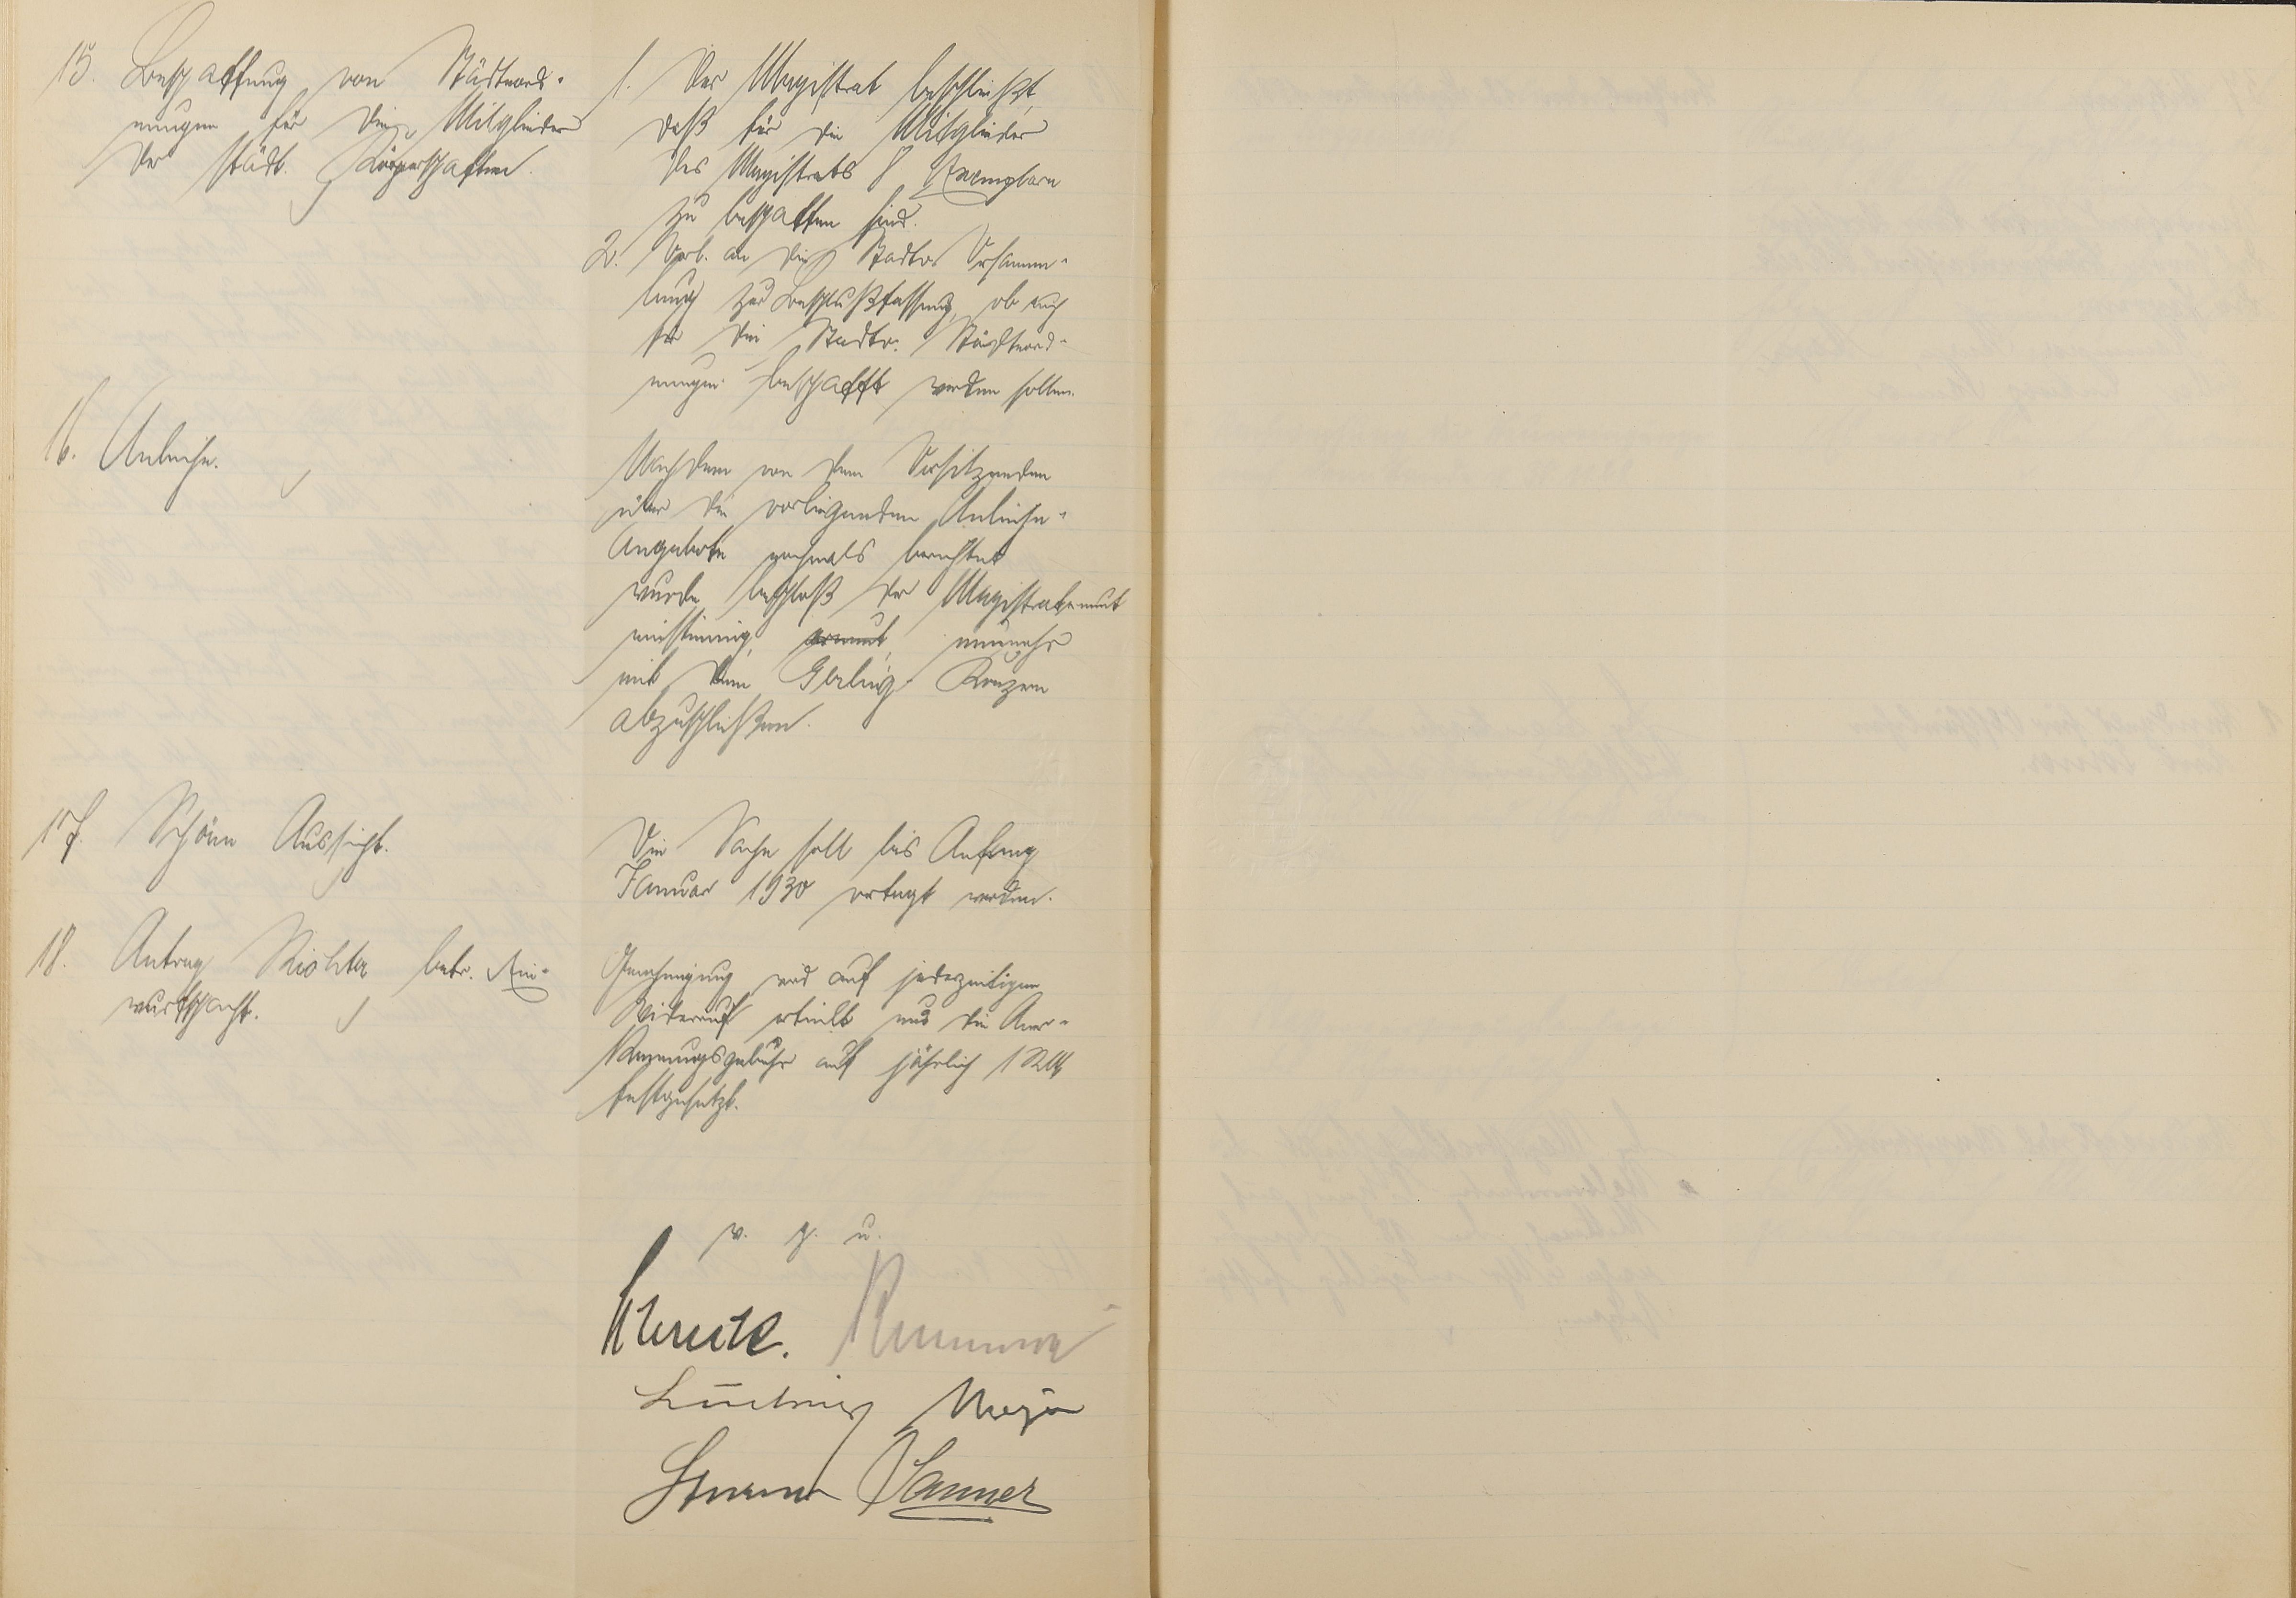 15. Beschaffung von Städteord-
nungen für die Mitglieder
der städt. Körperschaften.
1. Der Magistrat beschließt,
daß für die Mitglieder
des Magistrats 8 Exemplare
zu beschaffen sind.
2. Vorl. an die Stadtv. Versamm-
lung zur Beschlußfassung, ob auch
für die Stadtv. Städteord-
nungen beschafft werden sollen.
16. Anleihe.
Nachdem von dem Vorsitzenden
über die vorliegenden Anleihe-
Angebote nochmals berichtet
wurde, beschloß der Magistrat erneut
einstimmig, erneut, nunmehr
mit dem Gerling-Konzern
abzuschließen.
17. Schöne Aussicht.
Die Sache soll bis Anfang
Januar 1930 vertagt werden.
18. Antrag Richter betr. Ein-
wurfschacht.
Genehmigung wird auf jederzeitigen
Widerruf erteilt und die Aner-
kennungsgebühr auf jährlich 1 RM
festgesetzt.
v. g. u.
Ludwig Meyer
Sturm Sanner